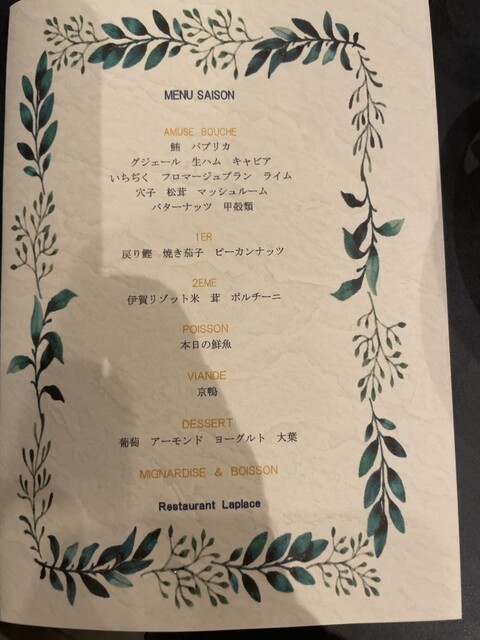 MENU SAISON
AMUSE BOUCHE
鮪 パプリカ
グジェール 生ハム キャビア
いちぢく フロマージュブラン ライム
穴子 松茸 マッシュルーム
バターナッツ 甲殻類
1ER
戻り鰹 焼き茄子 ピーカンナッツ
2EME
伊賀リゾット米 茸 ポルチーニ
POISSON
本日の鮮魚
VIANDE
京鴨
DESSERT
葡萄 アーモンド ヨーグルト 大葉
MIGNARDISE & BOISSON
Restaurant Laplace